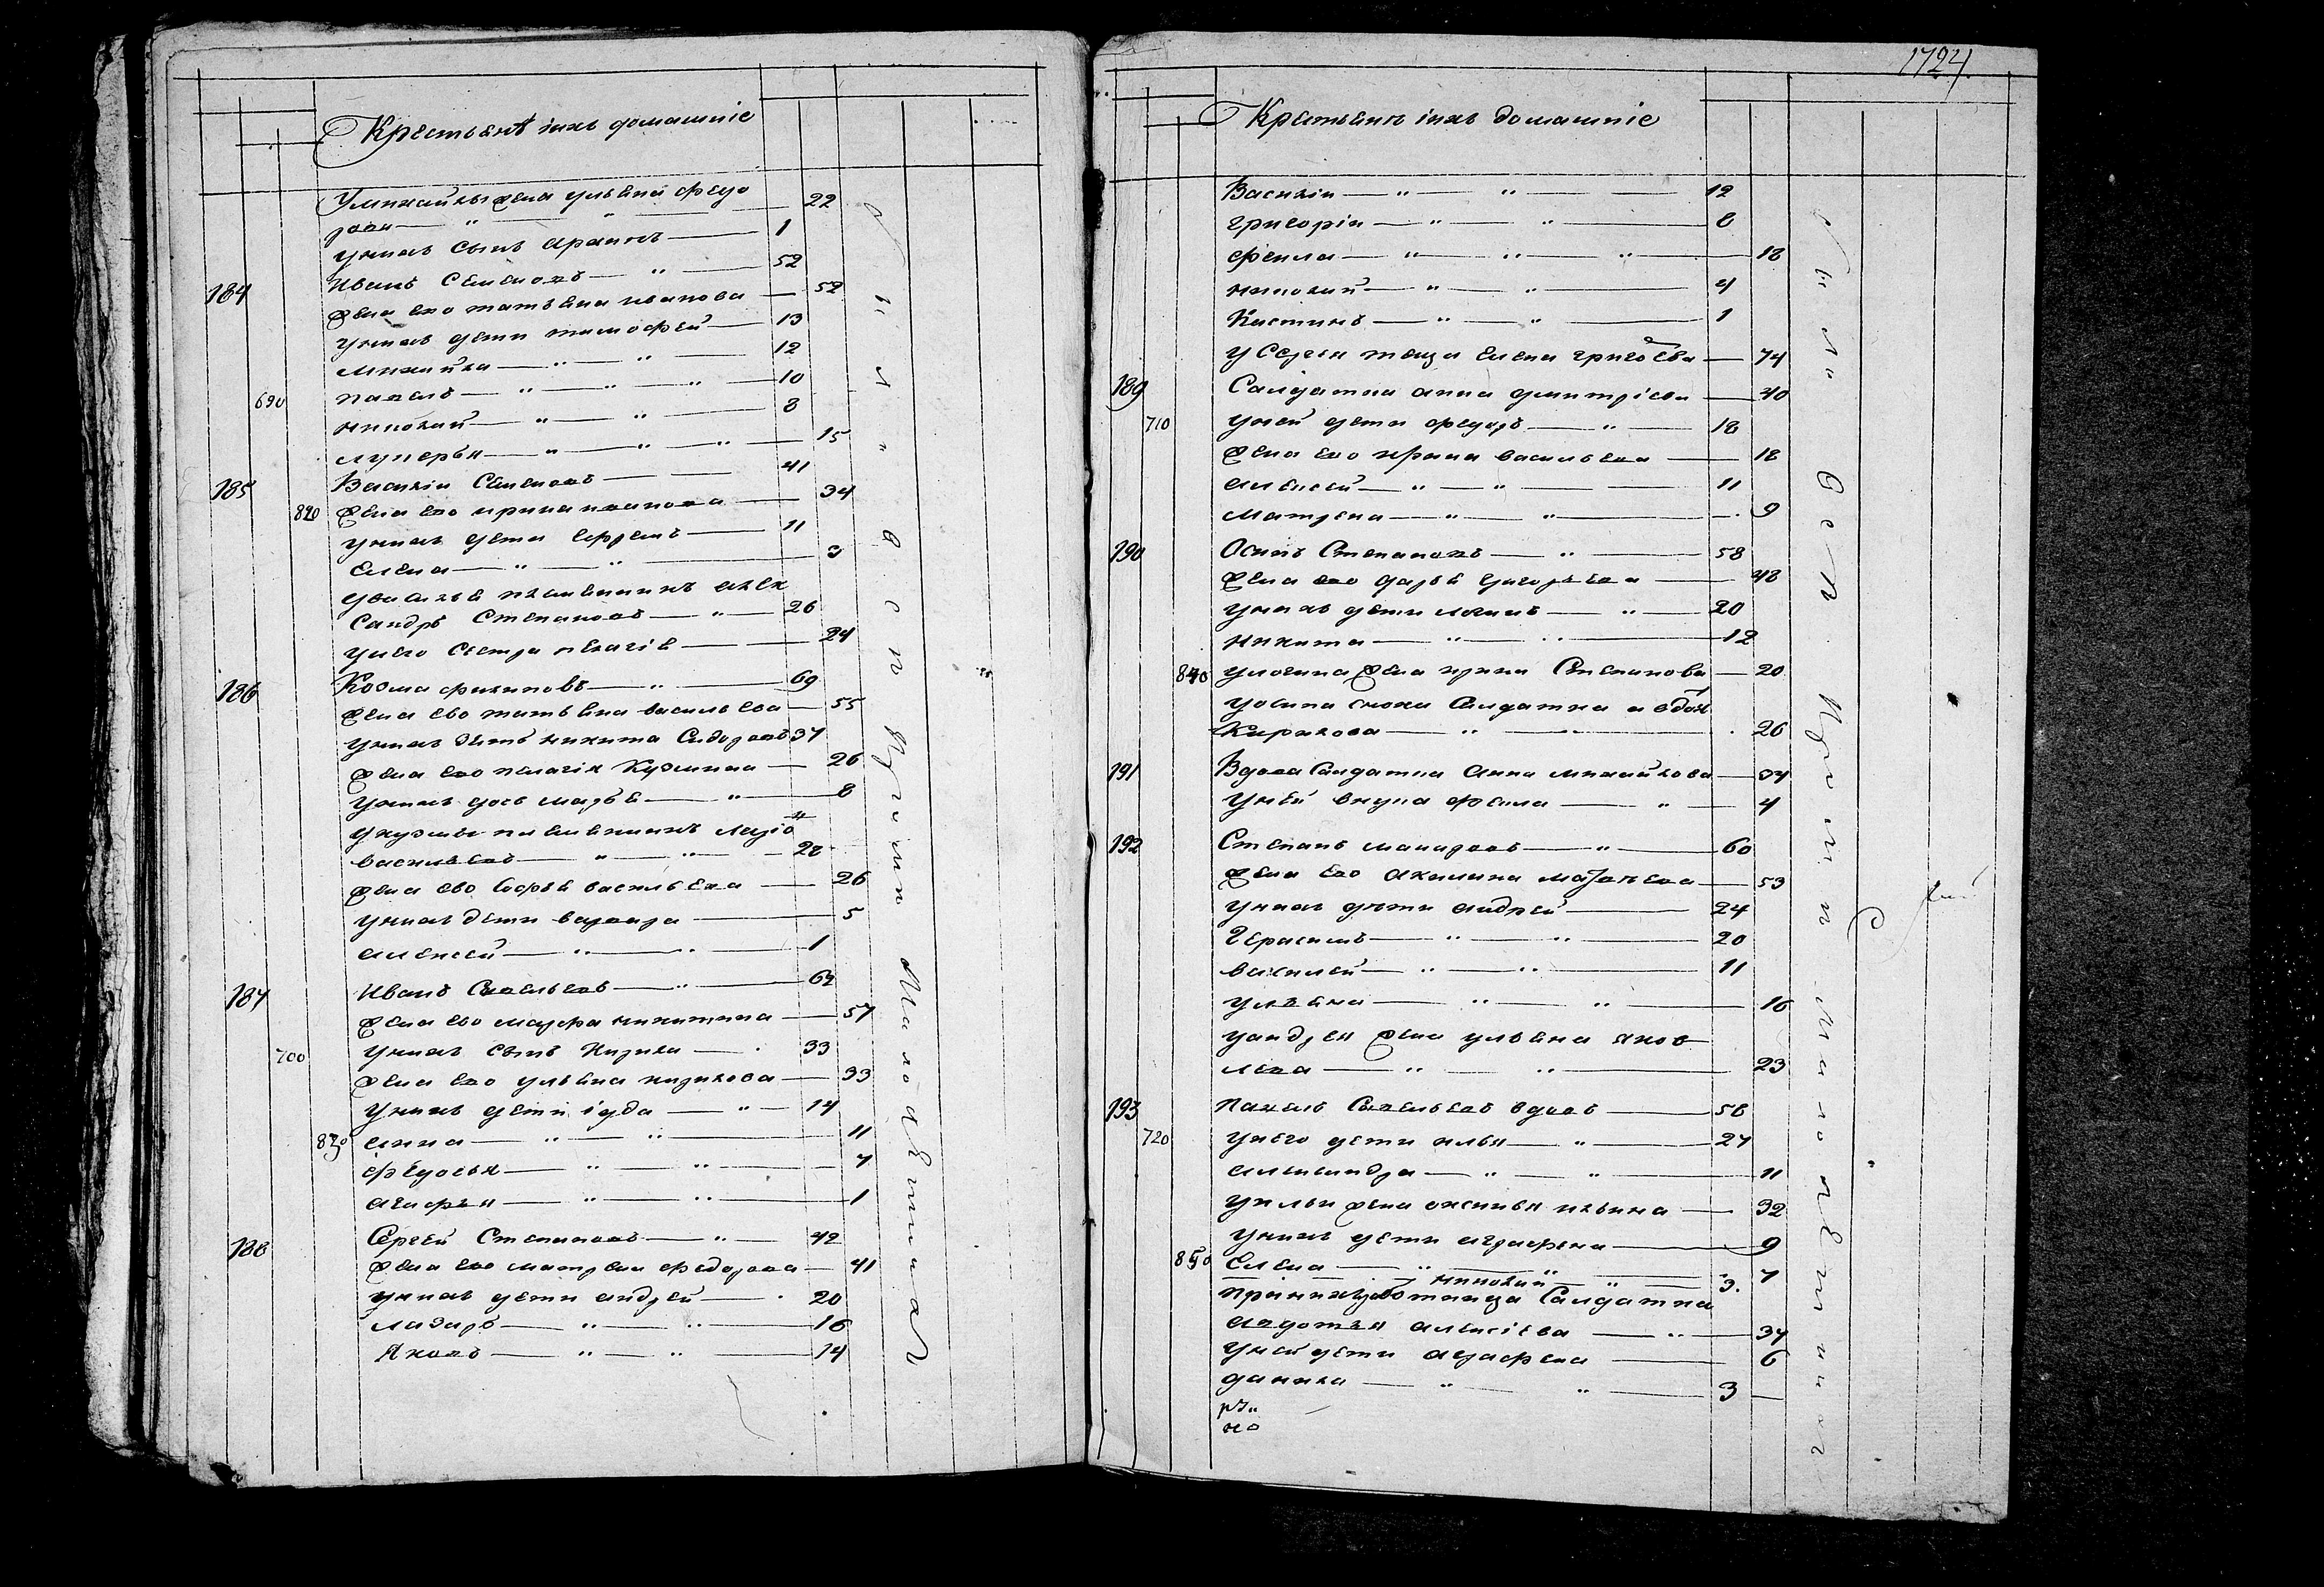 Крестьянѣ ихъ домашніе
Умихайлы жена ульяна федо
рова — " — " — 22
унихъ сынъ — 1
184 Иванъ Семеновъ — " — 52
жена ево татьяна иванова — 52
унихъ дети тимофей — 13
михайла — " — " — 12
690 павелъ — " — " — " — 10
николай — " — " — 8
лукерья — " — " — " — 15
185 Василіи Семеновъ — 41
820 жена ево ирина иванова — 34
унихъ дети ефремъ — 11
елена — " — " — 3
увасилья племянникъ алек
сандръ Степановъ — " — 26
унего сестра пелагія — 24
186 Козма филиповъ — " — 69
жена ево татьяна васильева — 55
унихъ зять никита Сидоровъ 37
жена ево пелагія Кузмина — 26
унихъ дочь марья — " — 8
укузмы племянникъ ларіо н
васильевъ — " — " — 28
жена ево софья васильева — 26
унихъ дети варвара — 5
алексей — " — " — 1
187 Иванъ Савельевъ — " — 67
жена ево марфа никитина — 57
700 унихъ сынъ Кирила — 33
жена ево ульяна кирилова — 33
унихъ дети іуда — " — 14
830 анна — " — " — 11
федосья — " — " — 7
агафья — " — " — 1
188 Сергей Степановъ — " — 42
жена ево матрена федорова — 41
унихъ дети андрей — 20
лазарь — " — " — 16
Яковъ — " — " — 14
1724
Крестьянѣ ихъ домашніе
Василіи — " — " — 12
григоріи — " — " — 8
фекла — " — " — " — 18
николай — " — " — 4
— " — " — 1
у Сергея теща елена григорьева — 74
189 Салдатка анна дмитріева — 40
710 уней дети федоръ — " — 18
жена ево ирина васильева — 18
алексей — " — " — 11
матрена — " — " — 9
190 Осипъ Степановъ — " — 58
жена ево дарья григорьева — 48
унихъ дети логинъ — " — 20
никита — " — " — 12
840 улогина жена ирина Степанова — 20
уосипа сноха Салдатка авдотя
Кирилова — " — " — 26
191 Вдова Салдатка Анна михайлова — 34
уней внука фекла — " — 4
192 Степанъ макаровъ — " — 60
жена ево акилина матвеева — 53
унихъ дети андрей — 24
Герасимъ — " — " — 20
василей — " — " — 11
ульяна — " — " — 16
уандрея жена ульяна яков
лева — " — " — 23
193 Павелъ Савельевъ вдовъ — 58
720 унего дети илья — " — 27
александра — " — " — 11
уильи жена аксинья ильина — 32
унихъ дети аграфена — 9
850 Елена — " — " — 7
николай — " — 3.
работница Салдатка
авдотья алексіева — " — 37
уней дети аграфена — 6
данила — " — " — 3